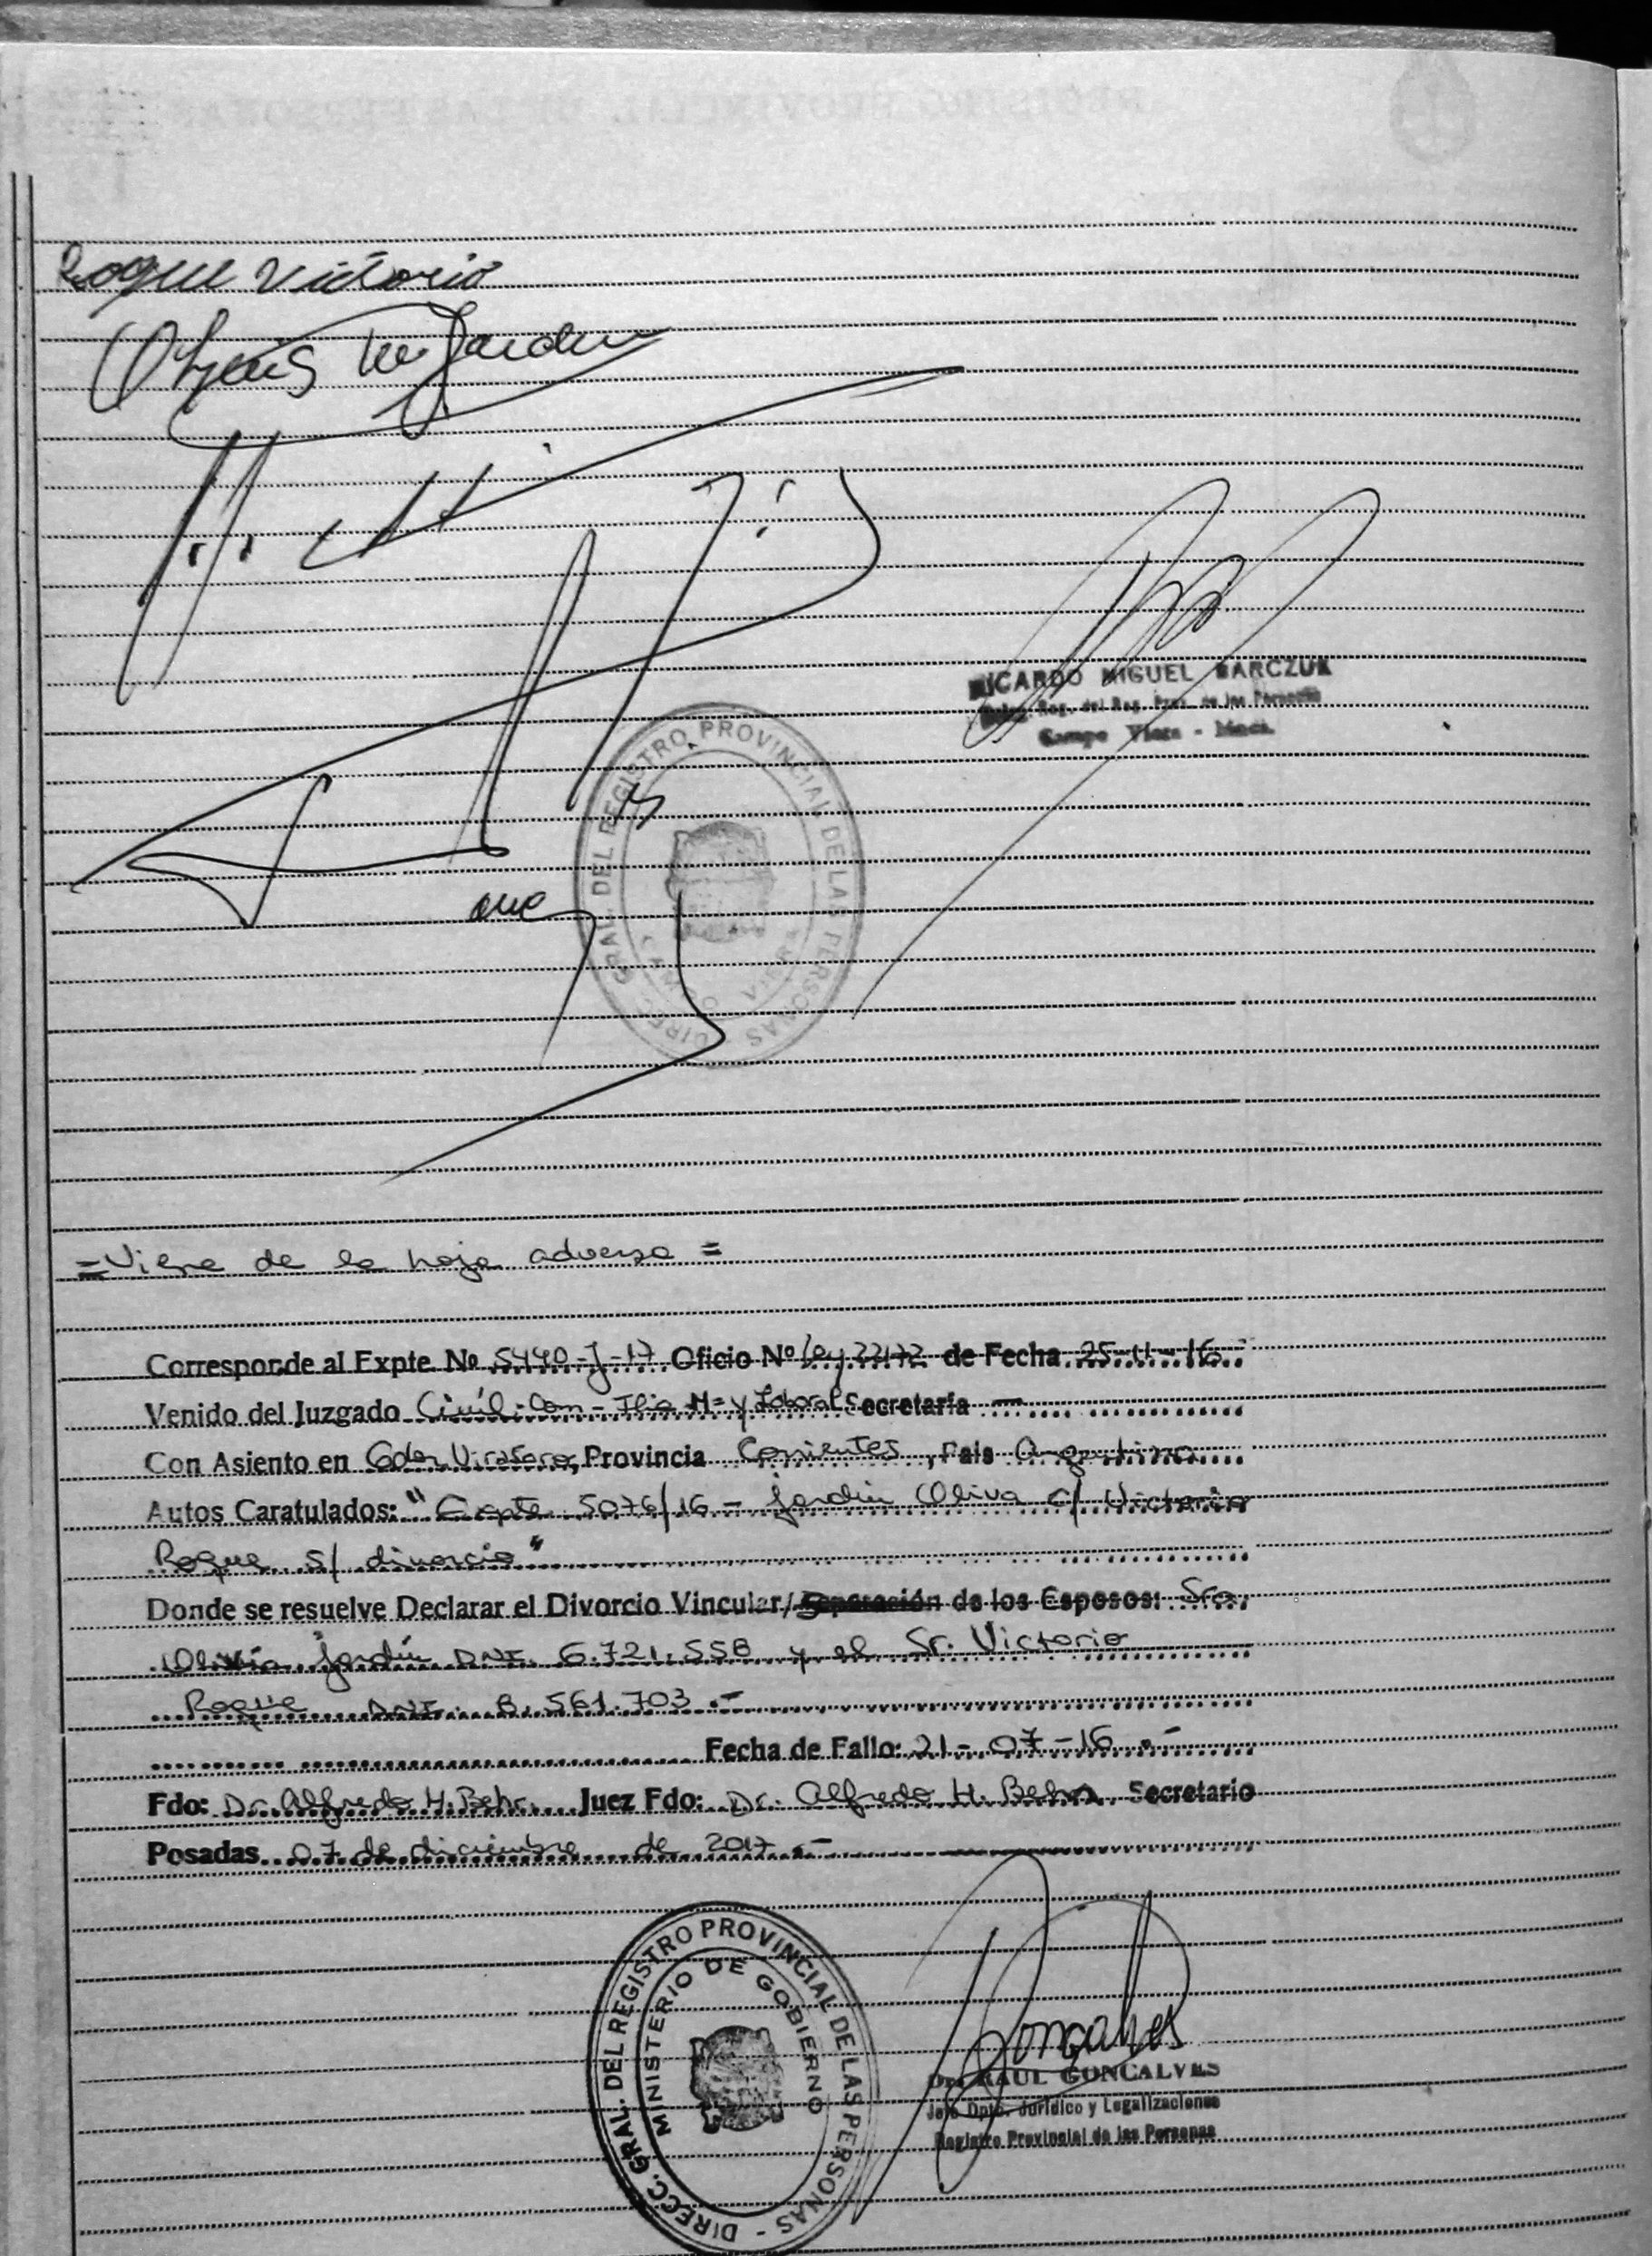 Roque Victorio
RICARDO MIGUEL BARCZUK
Reg. del Reg. Prov. de las Personas
Campo Viera - Mnes.
DIREC. GRAL. DEL REGISTRO PROVINCIAL DE LAS PERSONAS
CAMPO VIERA
= Viene de la hoja adversa =
Corresponde al Expte Nº 5440-J-17 Oficio Nº Ley 22172 de Fecha 25-11-16
Venido del Juzgado Civil-Com-Flia M= y Laboral Secretaría
Con Asiento en Gdor. Virasoro, Provincia Corrientes, País Argentina
Autos Caratulados: "Expte 5076/16 - Jardin Oliva c/ Victorio
Roque s/ divorcio"
Donde se resuelve Declarar el Divorcio Vincular/Separación de los Esposos: Sra.
Jardín DNI. 6.721.558 y el Sr. Victorio
Roque DNI. 8.561.703.-
Fecha de Fallo: 21-07-16.-
Fdo: Dr. Alfredo H. Behr. Juez Fdo: Dr. Alfredo H. Behr. Secretario
Posadas 07 de diciembre de 2017.-
DIRECC. GRAL. DEL REGISTRO PROVINCIAL DE LAS PERSONAS -
MINISTERIO DE GOBIERNO
Goncalves
RAUL GONCALVES
Jefe Dpto. Jurídico y Legalizaciones
Registro Provincial de las Personas